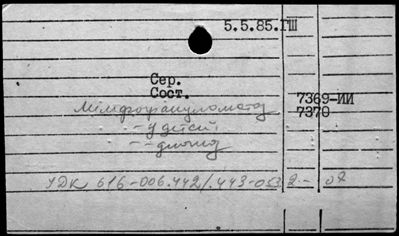 5.5.85.ГШ
Сер.
Сост.
7369-ИИ
7370
Лимфогранулематоз
-- у детей
УДК 616-006.442/.443-053.2 --